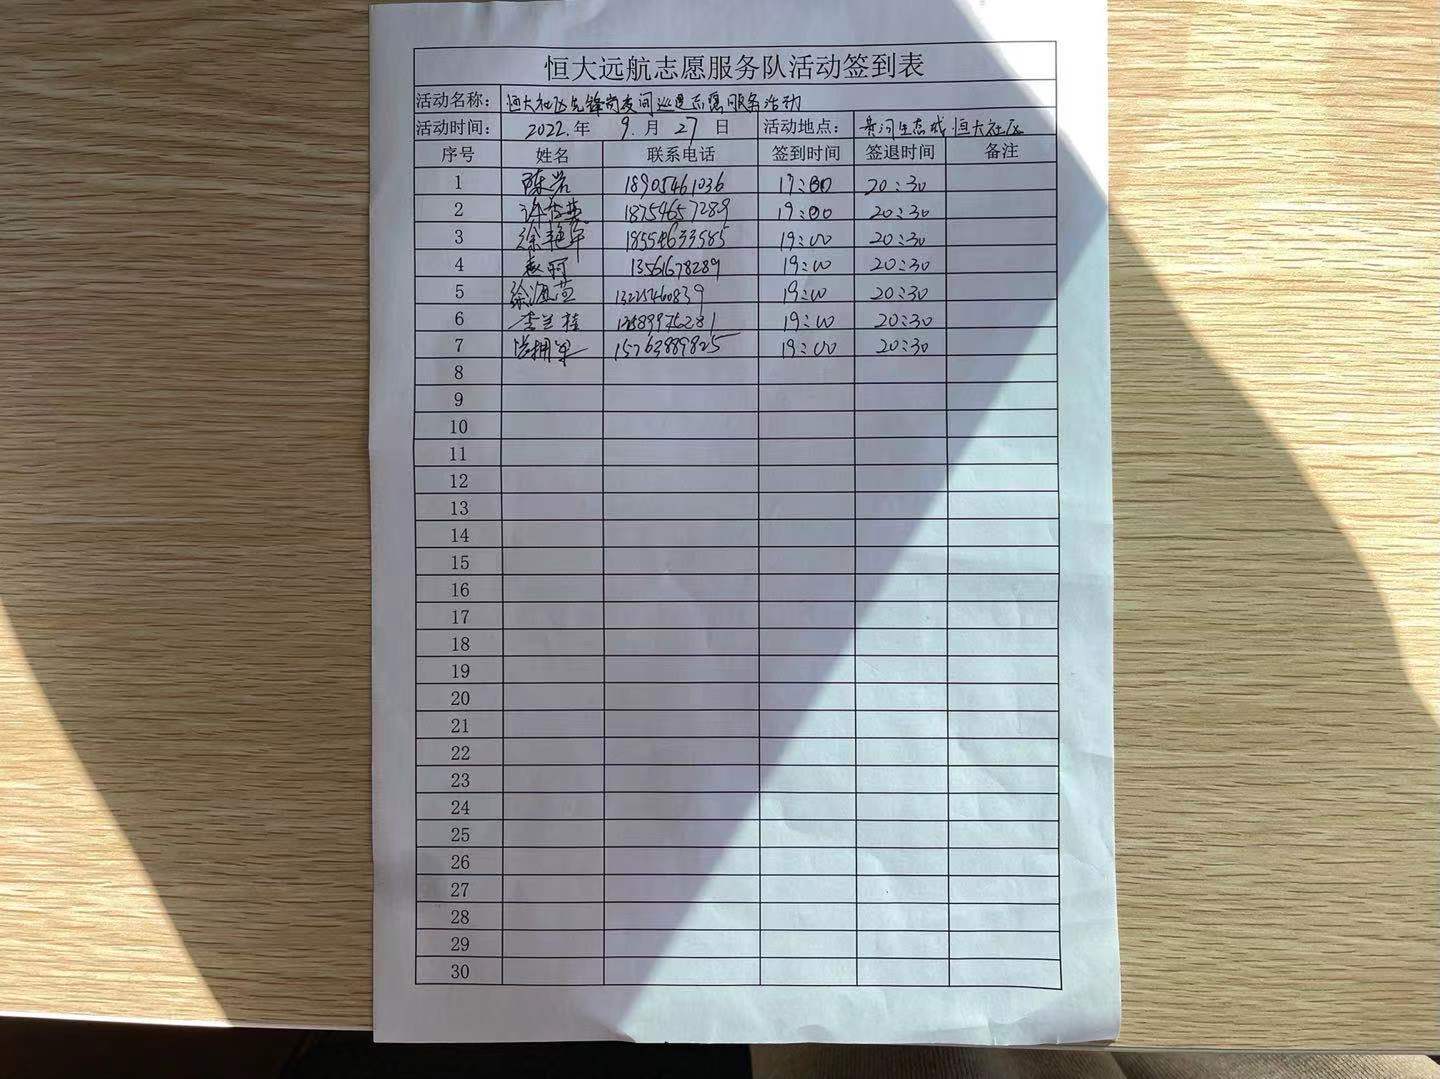 恒大远航志愿服务队活动签到表
活动名称： 恒大社区先锋岗夜间巡逻志愿服务活动
活动时间： 2022.年 9.月 27 日 活动地点： 黄河生态城恒大社区
序号 姓名 联系电话 签到时间 签退时间 备注
1 陈岩 18905461036 19:00 20:30
2 18754657289 19:00 20:30
3 徐艳华 18554633585 19:00 20:30
4 13561678289 19:00 20:30
5 徐海燕 13225460839 19:00 20:30
6 李兰桂 13589975281 19:00 20:30
7 15763889825 19:00 20:30
8
9
10
11
12
13
14
15
16
17
18
19
20
21
22
23
24
25
26
27
28
29
30